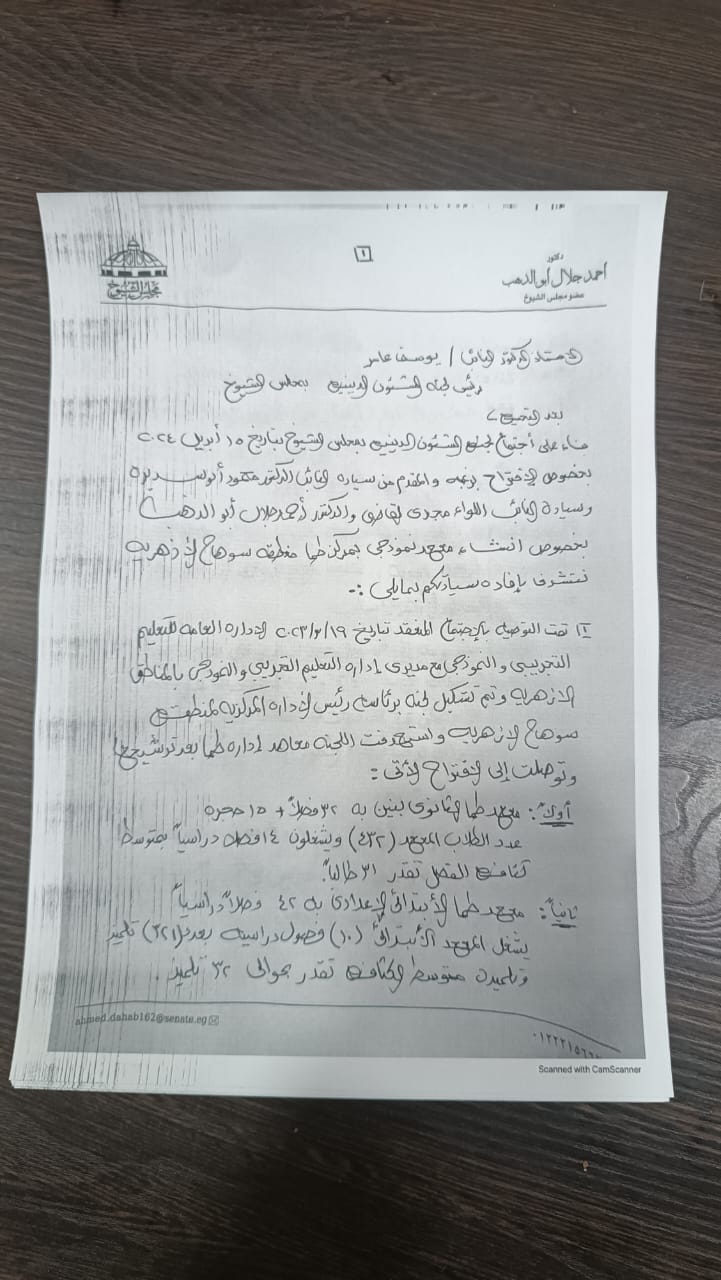 ١
دكتور
أحمد جلال أبو الدهب
عضو مجلس الشيوخ
مجلس الشيوخ
الأستاذ الدكتور النائب / يوسف عامر
رئيس لجنة الشئون الدينية بمجلس الشيوخ
بعد التحية ،
بناء على أجتماع لجنة الشئون الدينية بمجلس الشيوخ بتاريخ ١٥ أبريل ٢٠٢٤
بخصوص الاقتراح برغبة والمقدم من سيادة النائب الدكتور محمود أبو سديرة
وسيادة النائب اللواء مجدى القاضى والدكتور أحمد جلال أبو الدهب
بخصوص انشاء معهد نموذجى بمركز طما منطقة سوهاج الازهرية
نتشرف بإفادة سيادتكم بمايلى :-
١ تمت التوصية بالإجتماع المنعقد بتاريخ ٢٠٢٣/٢/١٩ الإدارة العامة للتعليم
التجريبى والنموذجى مع مديرى إدارة التعليم التجريبى والنموذجى بالمناطق
الازهرية وتم تشكيل لجنة برئاسة رئيس الإدارة المركزية لمنطقة
سوهاج الازهرية واستهدفت اللجنة معاهد إدارة طما بعد ترشيحها
وتوصلت إلى الاقتراح الأتى :
أولاً : معهد طما الثانوى بنين به ٣٢ فصلاً + ١٥ حجرة
عدد الطلاب المعهد (٤٣٢) ويشغلون ١٤ فصلاً دراسياً بمتوسط
كثافة الفصل تقدر ٣١ طالباً.
ثانياً : معهد طما الأبتدائى الإعدادى به ٤٢ فصلاً دراسياً
يشغل المعهد الأبتدائى (١٠) فصول دراسية بعدد (٣٢١) تلميذ
وتلميذة متوسط الكثافة تقدر بحوالى ٣٢ تلميذ .
ahmed.dahab162@senate.eg
Scanned with CamScanner